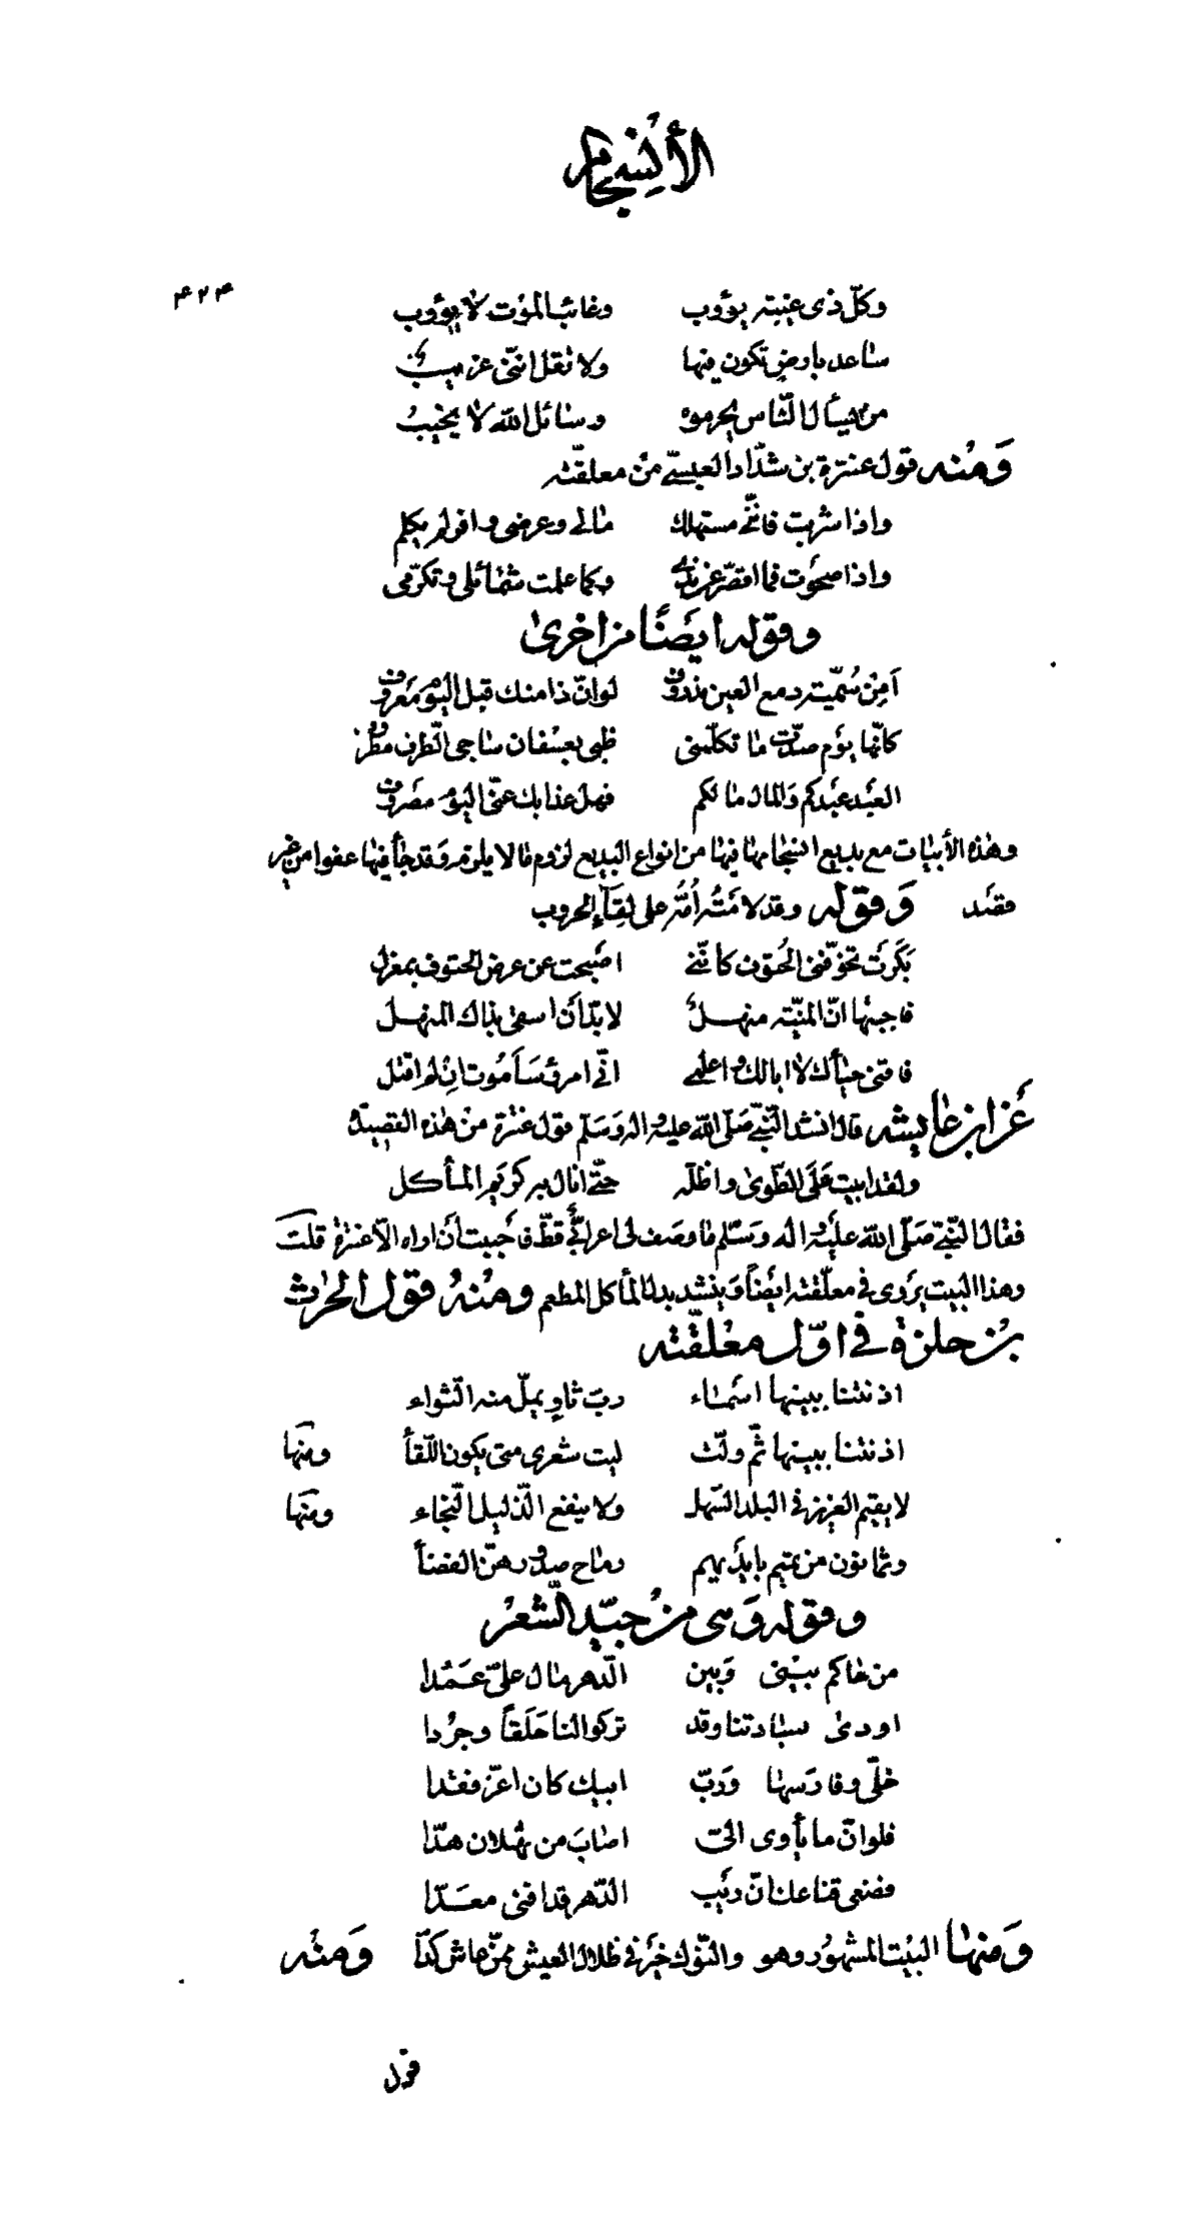 الأنسجام
۴۲۴
وكلّ ذى غيبته يؤوب وغائب الموت لا يؤوب
ساعد بارض تكون فيها ولا تقل انّنى غريب
من يسأل النّاس يحرموه وسائل الله لا يخيب
ومنه قول عنترة بن شدّاد العبسىّ من معلقّته
واذا شربت فانّنى مستهلك مالى وعرضى وافر لم يكلم
واذا صحوت فما اقصّر عن ندى وكما علمت شمائلى وتكرّمى
وقوله ايضًا من اخرى
أمن سُميّة دمع العين مذروف لو انّ ذا منك قبل اليوم معروف
كانّها يوم صدّت ما تكلّمنى ظبى بعسفان ساجى الطّرف مطروف
العبد عبدكم والمال مالكم فهل عذابك عنّى اليوم مصروف
وهذه الأبيات مع بديع انسجامها فيها من انواع البديع لزوم ما لا يلزم وقد جاء فيها عفوا من غير
قصد وقوله وقد لامته أمّه على لقاء الحروب
بكرت تخوّفنى الحتوف كانّنى اصبحت عن عرض الحتوف بمعزل
فاجبتها انّ المنيّة منهل لا بدّ أن اسقى بذاك المنهل
فاقنى حياءك لا ابا لك واعلمى انّى امرؤ سأموت إن لم اقتل
عن ابن عايشه قال انشد النّبىّ صلّى الله عليه واله وسلم قول عنترة من هذه القصيدة
ولقد ابيت على الطّوى واظلّه حتّى انال به كريم المأكل
فقال النّبىّ صلّى الله عليه واله وسلّم ما وصف لى اعرابىّ قطّ فأحببت أن اراه الّا عنترة قلت
وهذا البيت يروى فى معلّقته ايضًا وينشد بدل المأكل المطعم ومنه قول الحرث
بن حلزة فى اوّل معلقّته
اذنتنا ببينها اسماء ربّ ثاوٍ يملّ منه الثّواء
اذنتنا ببينها ثمّ ولّت ليت شعرى متى يكون اللّقاء ومنها
لا يقيم العزيز فى البلد السّهل ولا ينفع الذّليل النّجاء ومنها
وثمانون من تميم بايديهم رماح صدورهنّ القضاء
وقوله وهى من جيّد الشّعر
من حاكم بينى وبين الدّهر مال علىّ عمدا
اودى سادتنا وقد تركوا لنا حلقًا وجردا
خلّى وفارسها وربّ ابيك كان اعزّ فقدا
فلو انّ ما يأوى الىّ اصاب من ثهلان هدّا
فضعى قناعك انّ ريب الدّهر قد افنى معدّا
ومنها البيت المشهور وهو والنّوك خير فى ظلال العيش ممّن عاش كدّا ومنه
قول